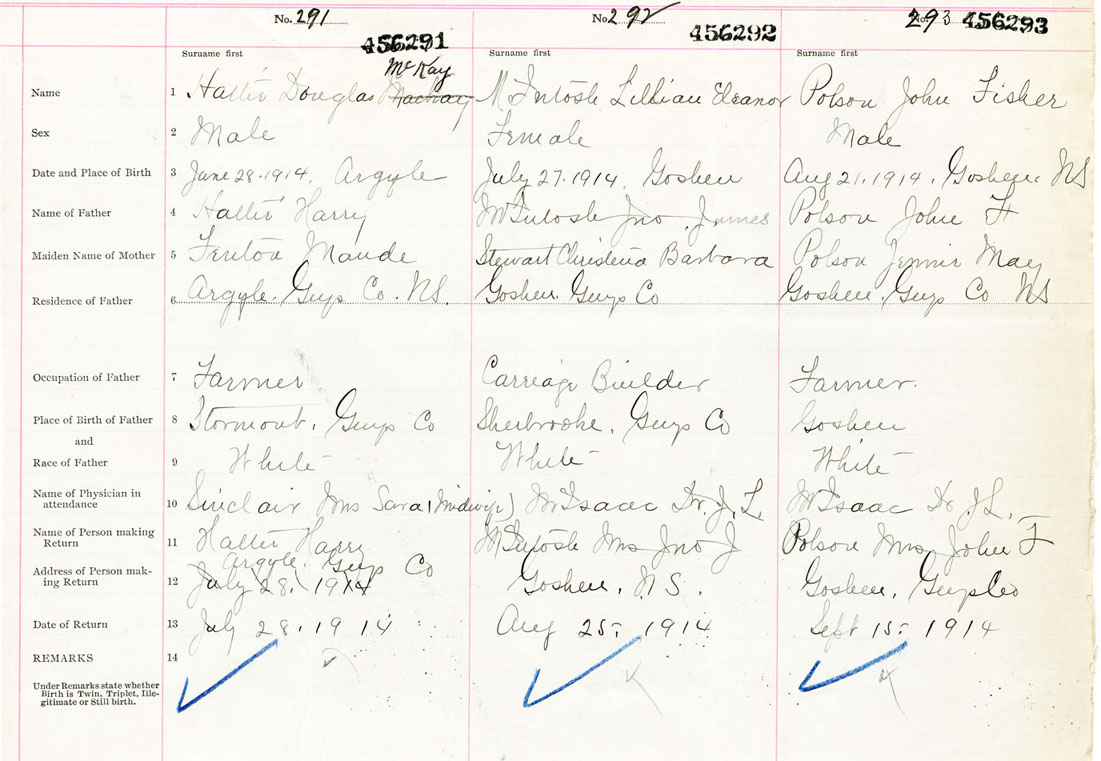 No. 291 No. 292 293
456291 456292 456293
Surname first Surname first Surname first
McKay
Name 1 Hattie Douglas Mackay McIntosh Lillian Eleanor Polson John Fisher
Sex 2 Male Female Male
Date and Place of Birth 3 June 28.1914. Argyle July 27.1914. Goshen Aug 21.1914. Goshen. NS
Name of Father 4 Hattie Harry McIntosh Jno James Polson John F
Maiden Name of Mother 5 Fenton Maude Stewart Christena Barbara Polson Jennie May
Residence of Father 6 Argyle. Guys Co. NS. Goshen. Guys Co Goshen. Guys Co NS
Occupation of Father 7 Farmer Carriage Builder Farmer.
Place of Birth of Father 8 Stormont. Guys Co Sherbrooke. Guys Co Goshen
and
Race of Father 9 White White White
Name of Physician in
attendance 10 Sinclair Mrs Sara (Midwife) McIsaac Dr. J. L. McIsaac Dr. J L.
Name of Person making
Return 11 Hattie Harry McIntosh Mrs Jno J Polson Mrs John F
Argyle. Guys Co
Address of Person mak-
ing Return 12 July 28. 1914 Goshen. N.S. Goshen, Guys Co
Date of Return 13 July 28. 1914 Aug 25, 1914 Sept 15, 1914
REMARKS 14
Under Remarks state whether
Birth is Twin, Triplet, Ille-
gitimate or Still birth.